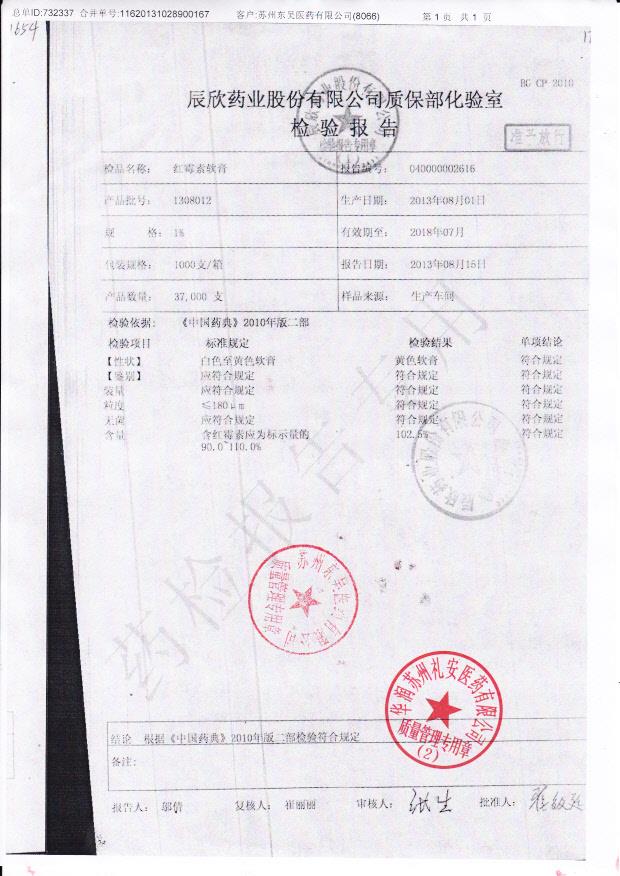 总单ID:732337 合并单号:11620131028900167 客户:苏州东吴医药有限公司(8066) 第1页 共1页
1654
BG CP 2010
辰欣药业股份有限公司质保部化验室
检验报告
准予放行
检验报告专用章
(1)
检品名称: 红霉素软膏 报告编号: 040000002616
产品批号: 1308012 生产日期: 2013年08月01日
规 格: 1% 有效期至: 2018年07月
包装规格: 1000支/箱 报告日期: 2013年08月15日
产品数量: 37,000 支 样品来源: 生产车间
检验依据: 《中国药典》2010年版二部
检验项目 标准规定 检验结果 单项结论
【性状】 白色至黄色软膏 黄色软膏 符合规定
【鉴别】 应符合规定 符合规定 符合规定
装量 应符合规定 符合规定 符合规定
粒度 ≤180μm 符合规定 符合规定
无菌 应符合规定 符合规定 符合规定
含量 含红霉素应为标示量的 102.5% 符合规定
90.0~110.0%
药检报告专用
苏州东吴医药有限公司
质量管理专用章
华润苏州礼安医药有限公司
质量管理专用章
(2)
结论 根据《中国药典》2010年版二部检验符合规定
备注:
报告人: 邬倩 复核人: 崔丽丽 审核人: 批准人: